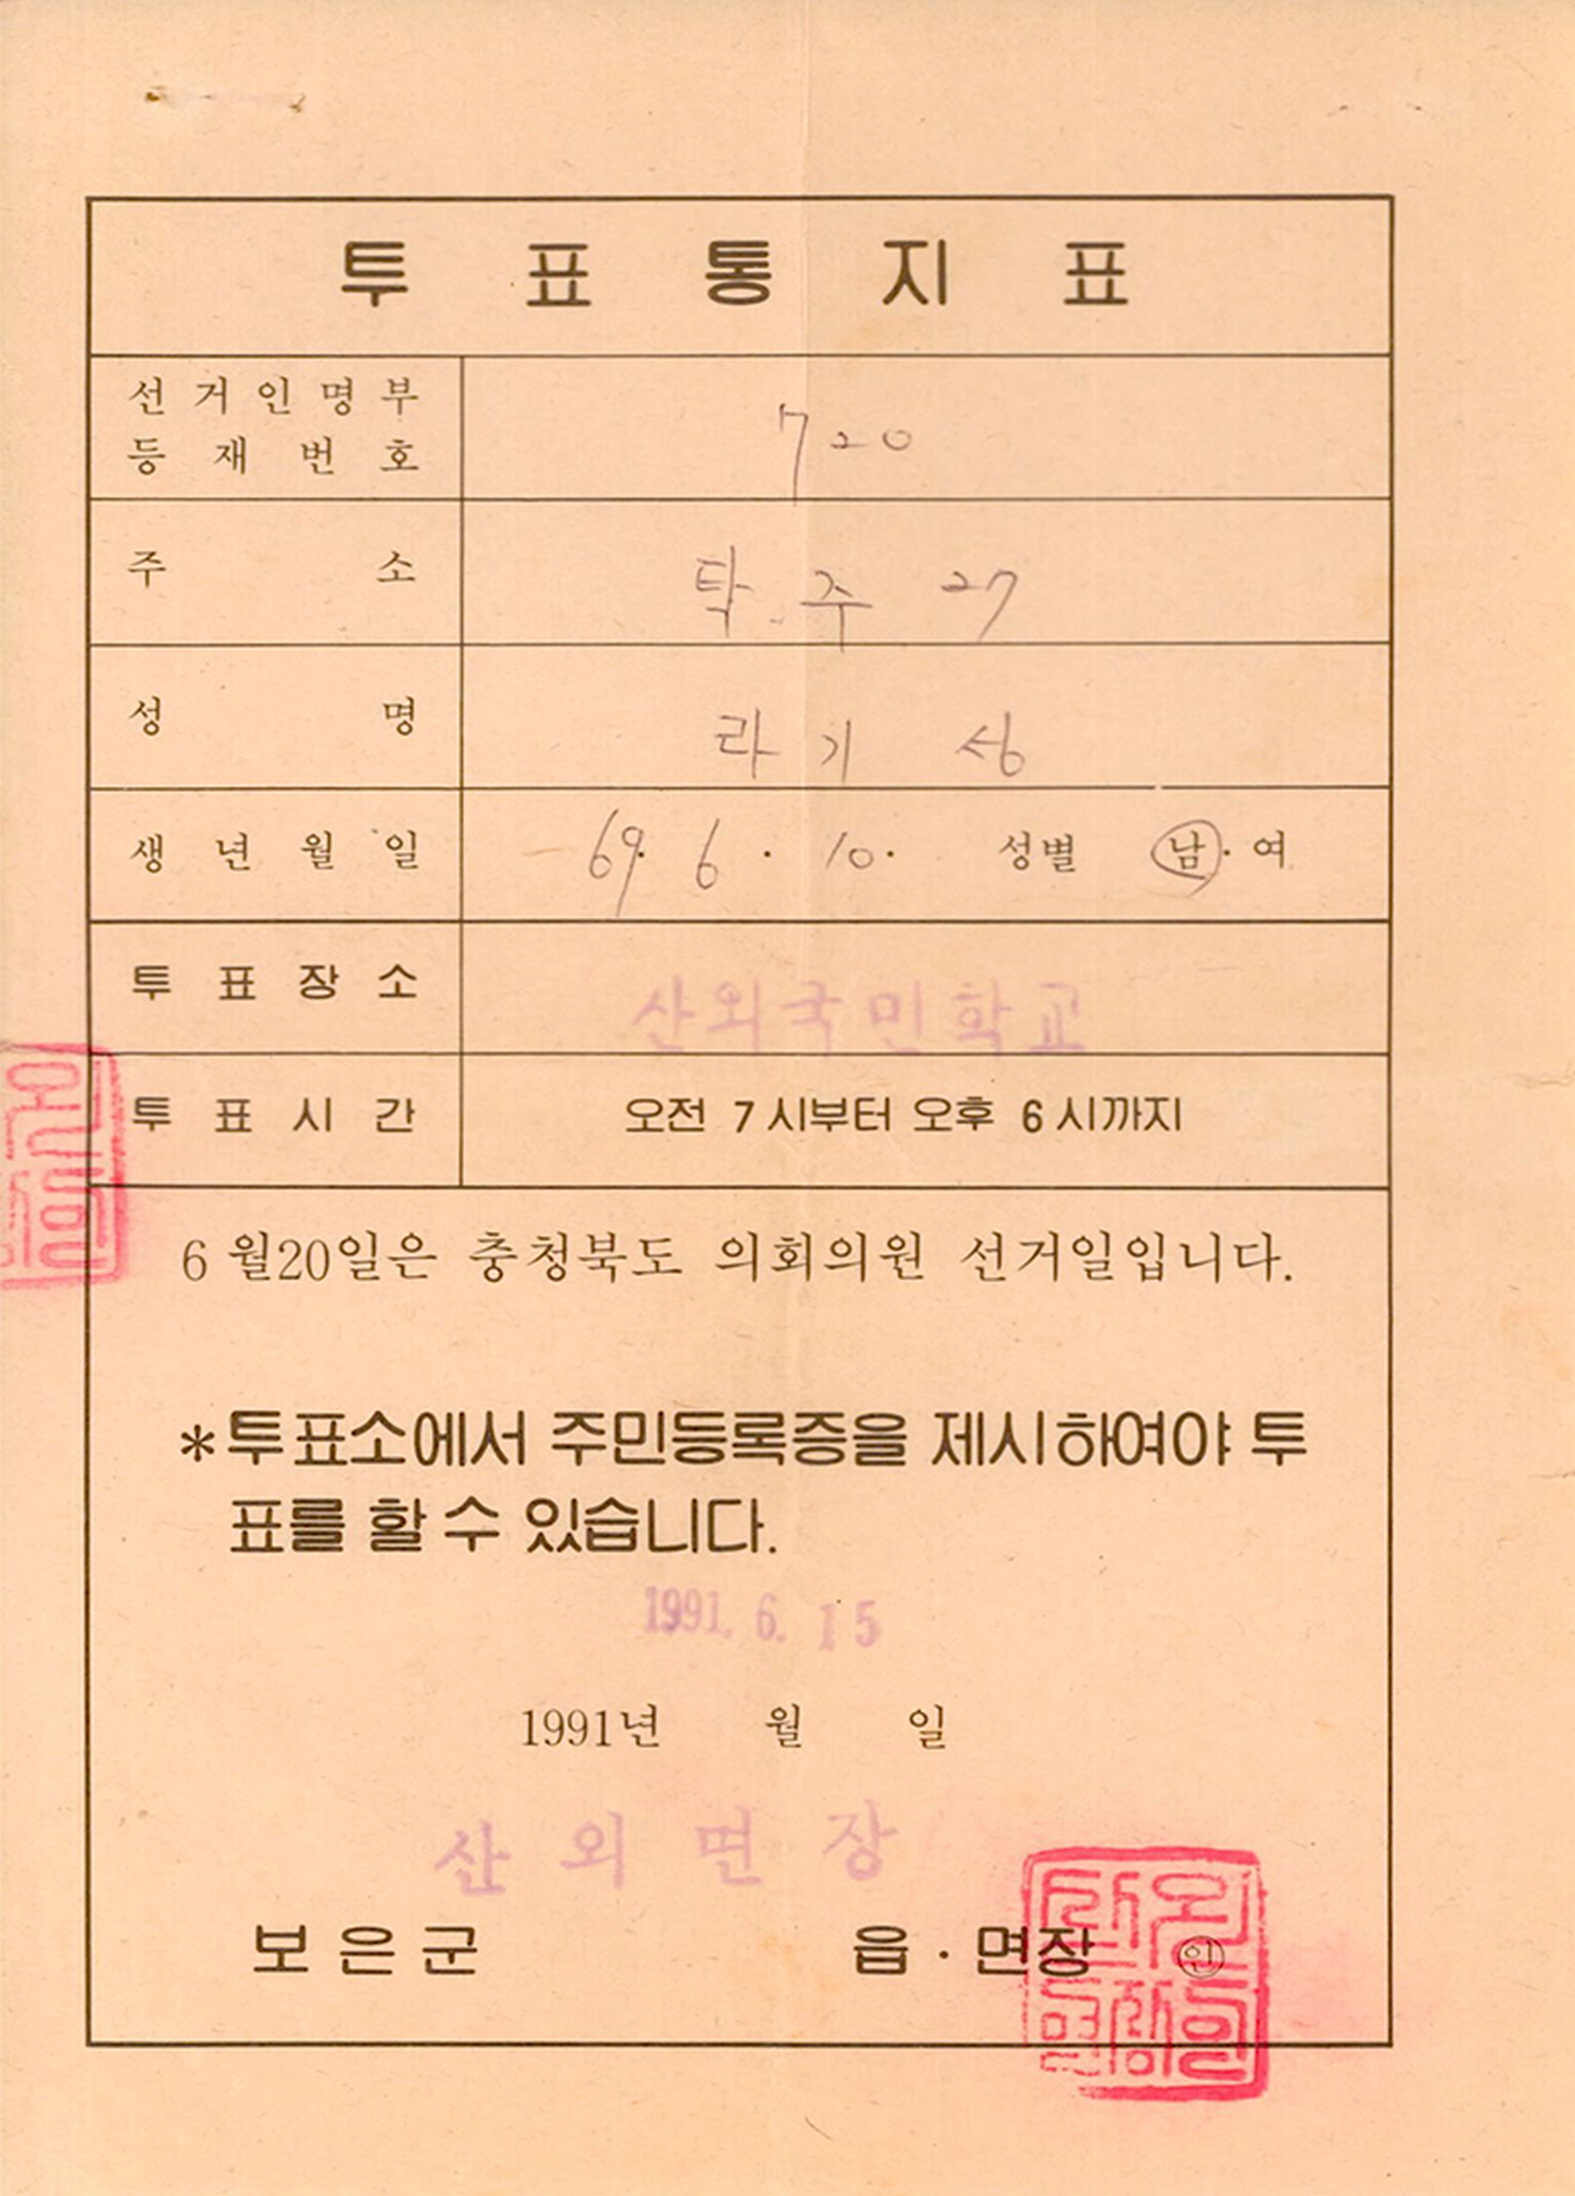 투표통지표
선거인명부
등재번호
720
주소
탁주 27
성명
라기성
생년월일
69. 6. 10. 성별 남·여
투표장소
산외국민학교
투표시간
오전 7시부터 오후 6시까지
6월20일은 충청북도 의회의원 선거일입니다.
*투표소에서 주민등록증을 제시하여야 투
표를 할 수 있습니다.
1991. 6. 15
1991년 월 일
산외면장
보은군 읍·면장 인